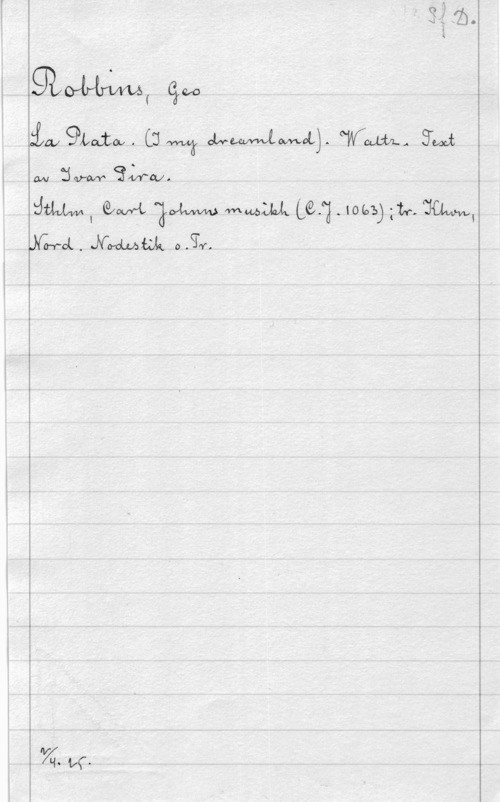 Sf. D.
Robbins, Geo
La Plata. (I my dreamland). Waltz. Text
av Ivar Pira.
Sthlm, Carl Johnns musikh (C.J. 1063); tr. Khvn,
Nord. Nodestik o. Tr.